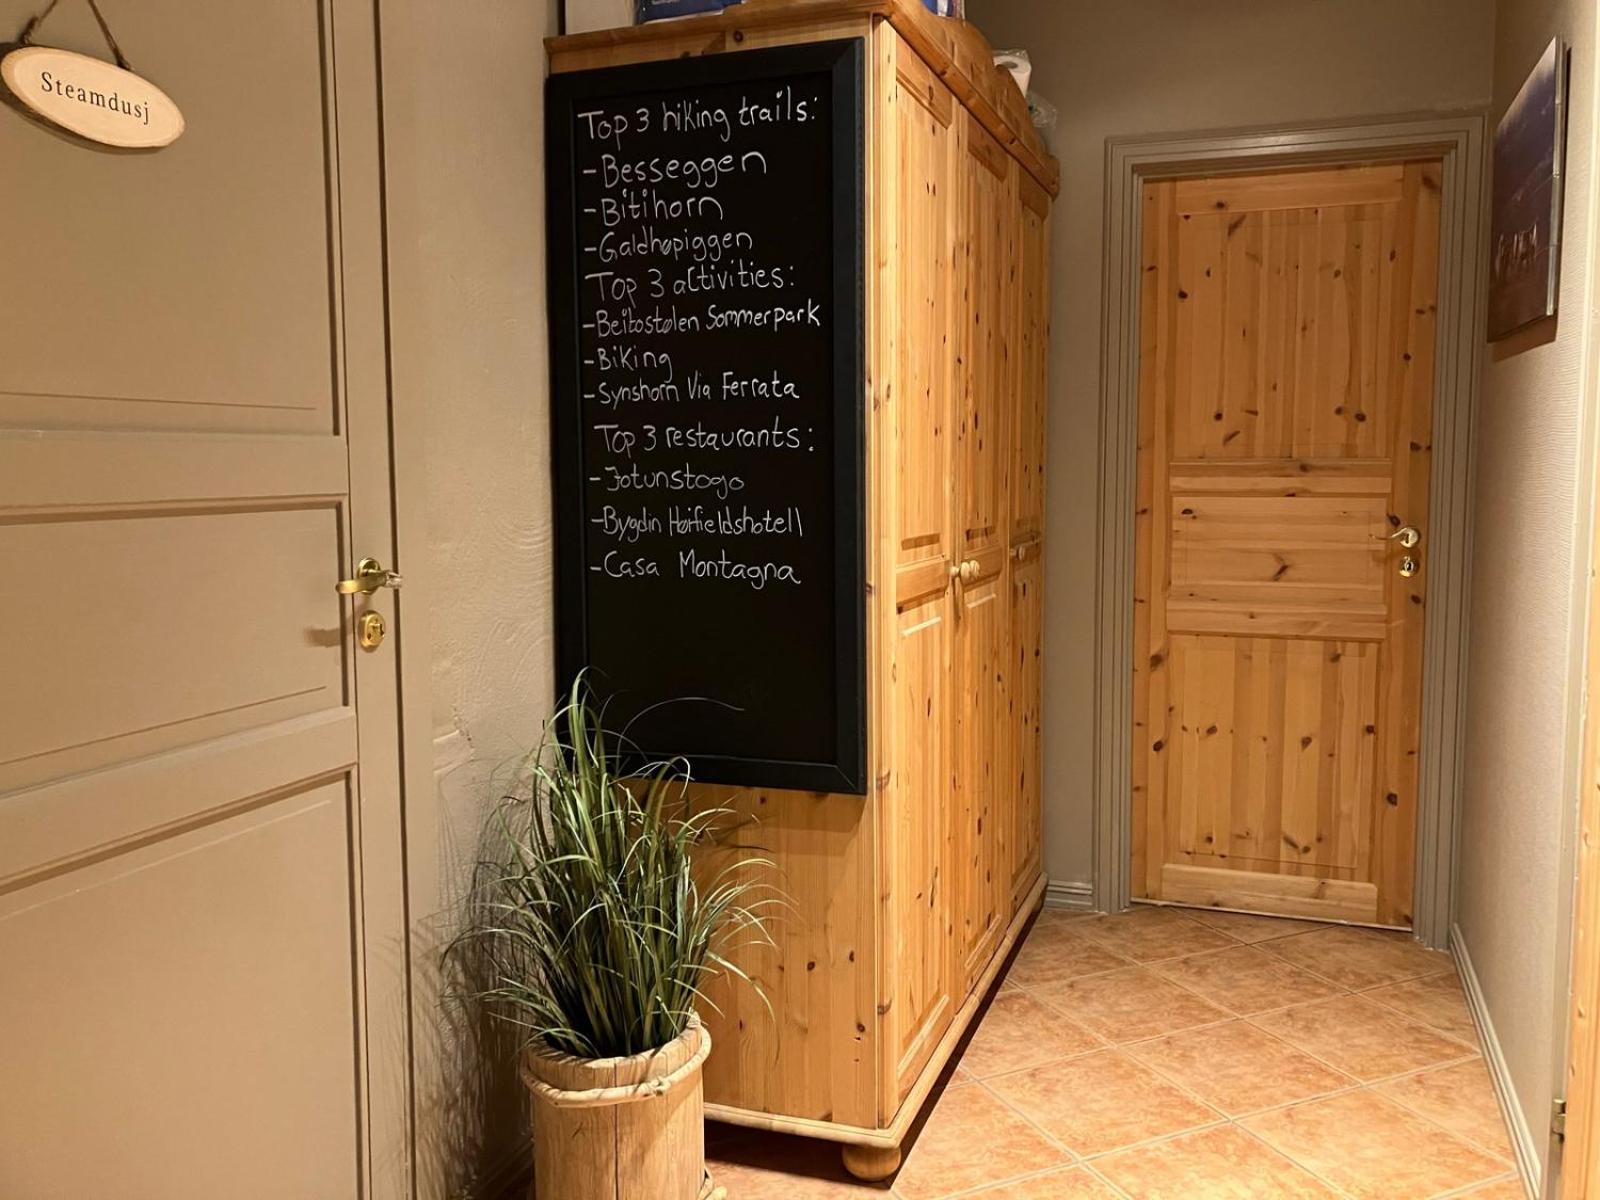 Steamdusj
Top 3 hiking trails:
-Besseggen
-Bitihorn
-Galdhøpiggen
Top 3 activities:
-Beitostølen Sommerpark
-Biking
-Synshorn Via Ferrata
Top 3 restaurants:
-Jotunstogo
-Bygdin Høifieldshotell
-Casa Montagna